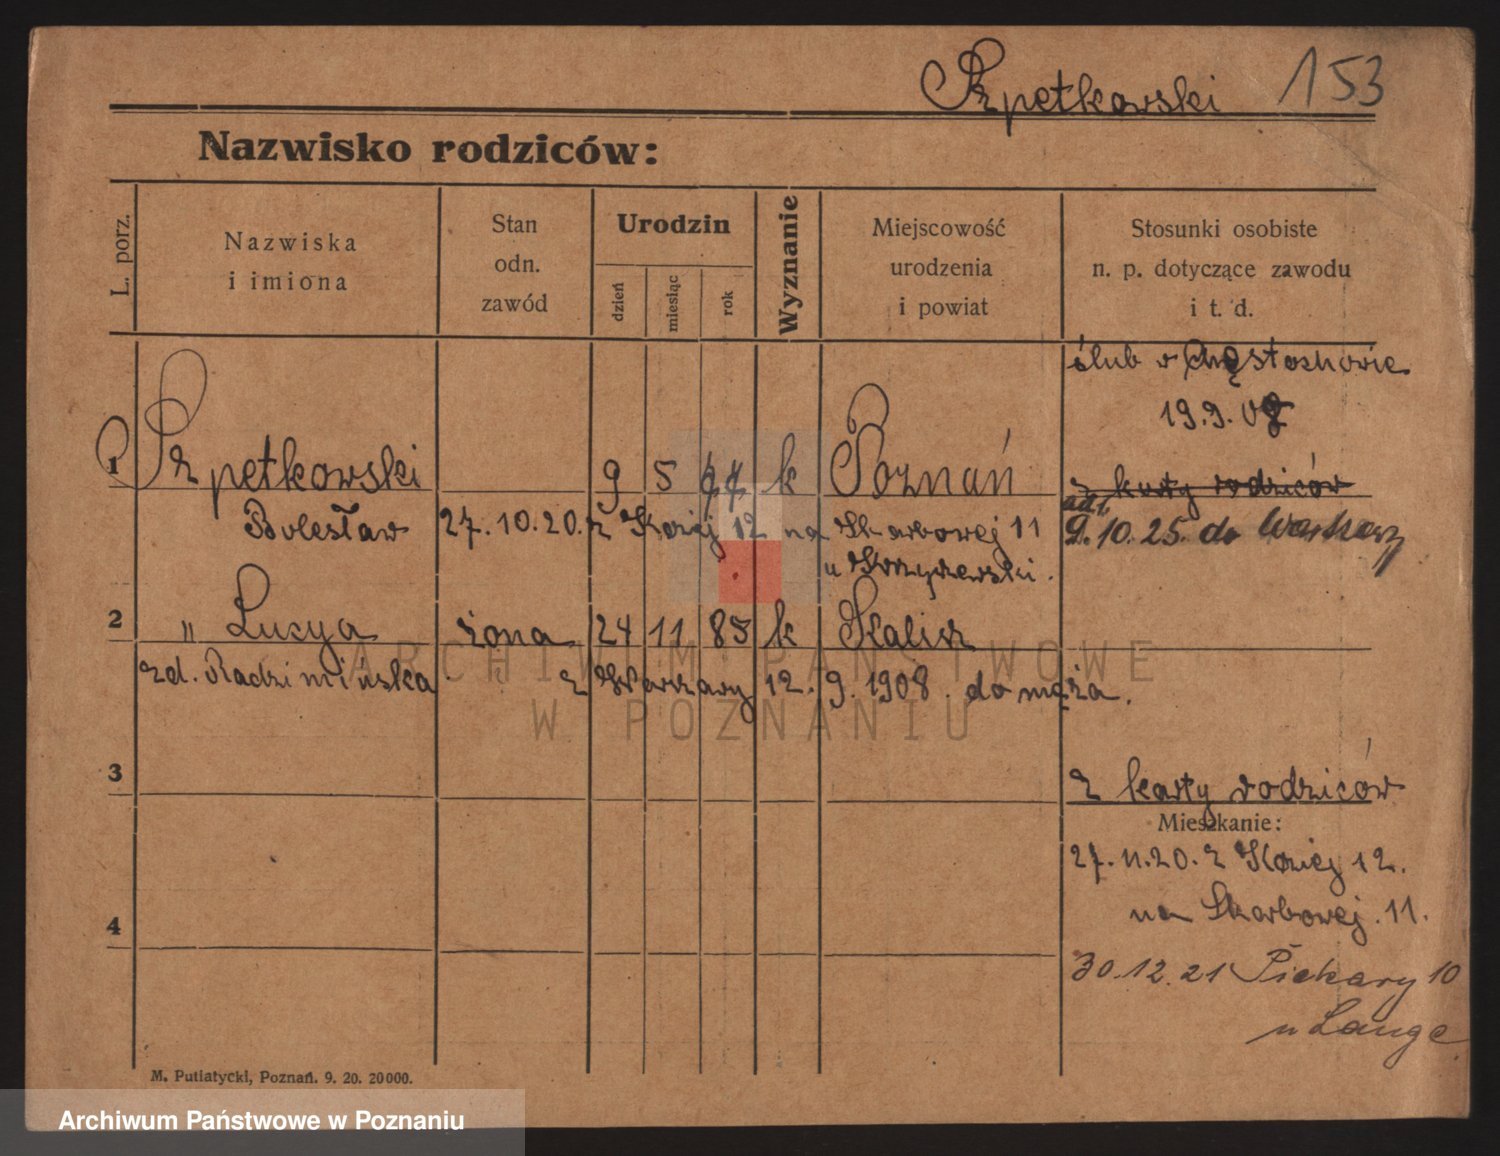 Rzpetkowski 153
Nazwisko rodziców:
L. porz.
Nazwiska
i imiona
Stan
odn.
zawód
Urodzin
dzień
miesiąc
rok
Wyznanie
Miejscowość
urodzenia
i powiat
Stosunki osobiste
n. p. dotyczące zawodu
i t. d.
ślub w Częstochowie
19.9.08
1 Rzpetkowski 9 5 77 k Poznań
z karty rodziców
Bolesław 27.10.20. z Koziej 12 na Skarbowej 11
adł.
9.10.25. do Warszawy
u Skrzyszewski.
2 " Lucya żona 24 11 85 k Kalisz
zd. Radzimińska z Warszawy 12.9.1908. do męża.
3
z karty rodziców
Mieszkanie:
27.11.20. z Koziej 12.
na Skarbowej 11.
4
30.12.21 Piekary 10
u Lange
M. Putiatycki, Poznań. 9. 20. 20000.
ARCHIWUM PAŃSTWOWE
W POZNANIU
Archiwum Państwowe w Poznaniu